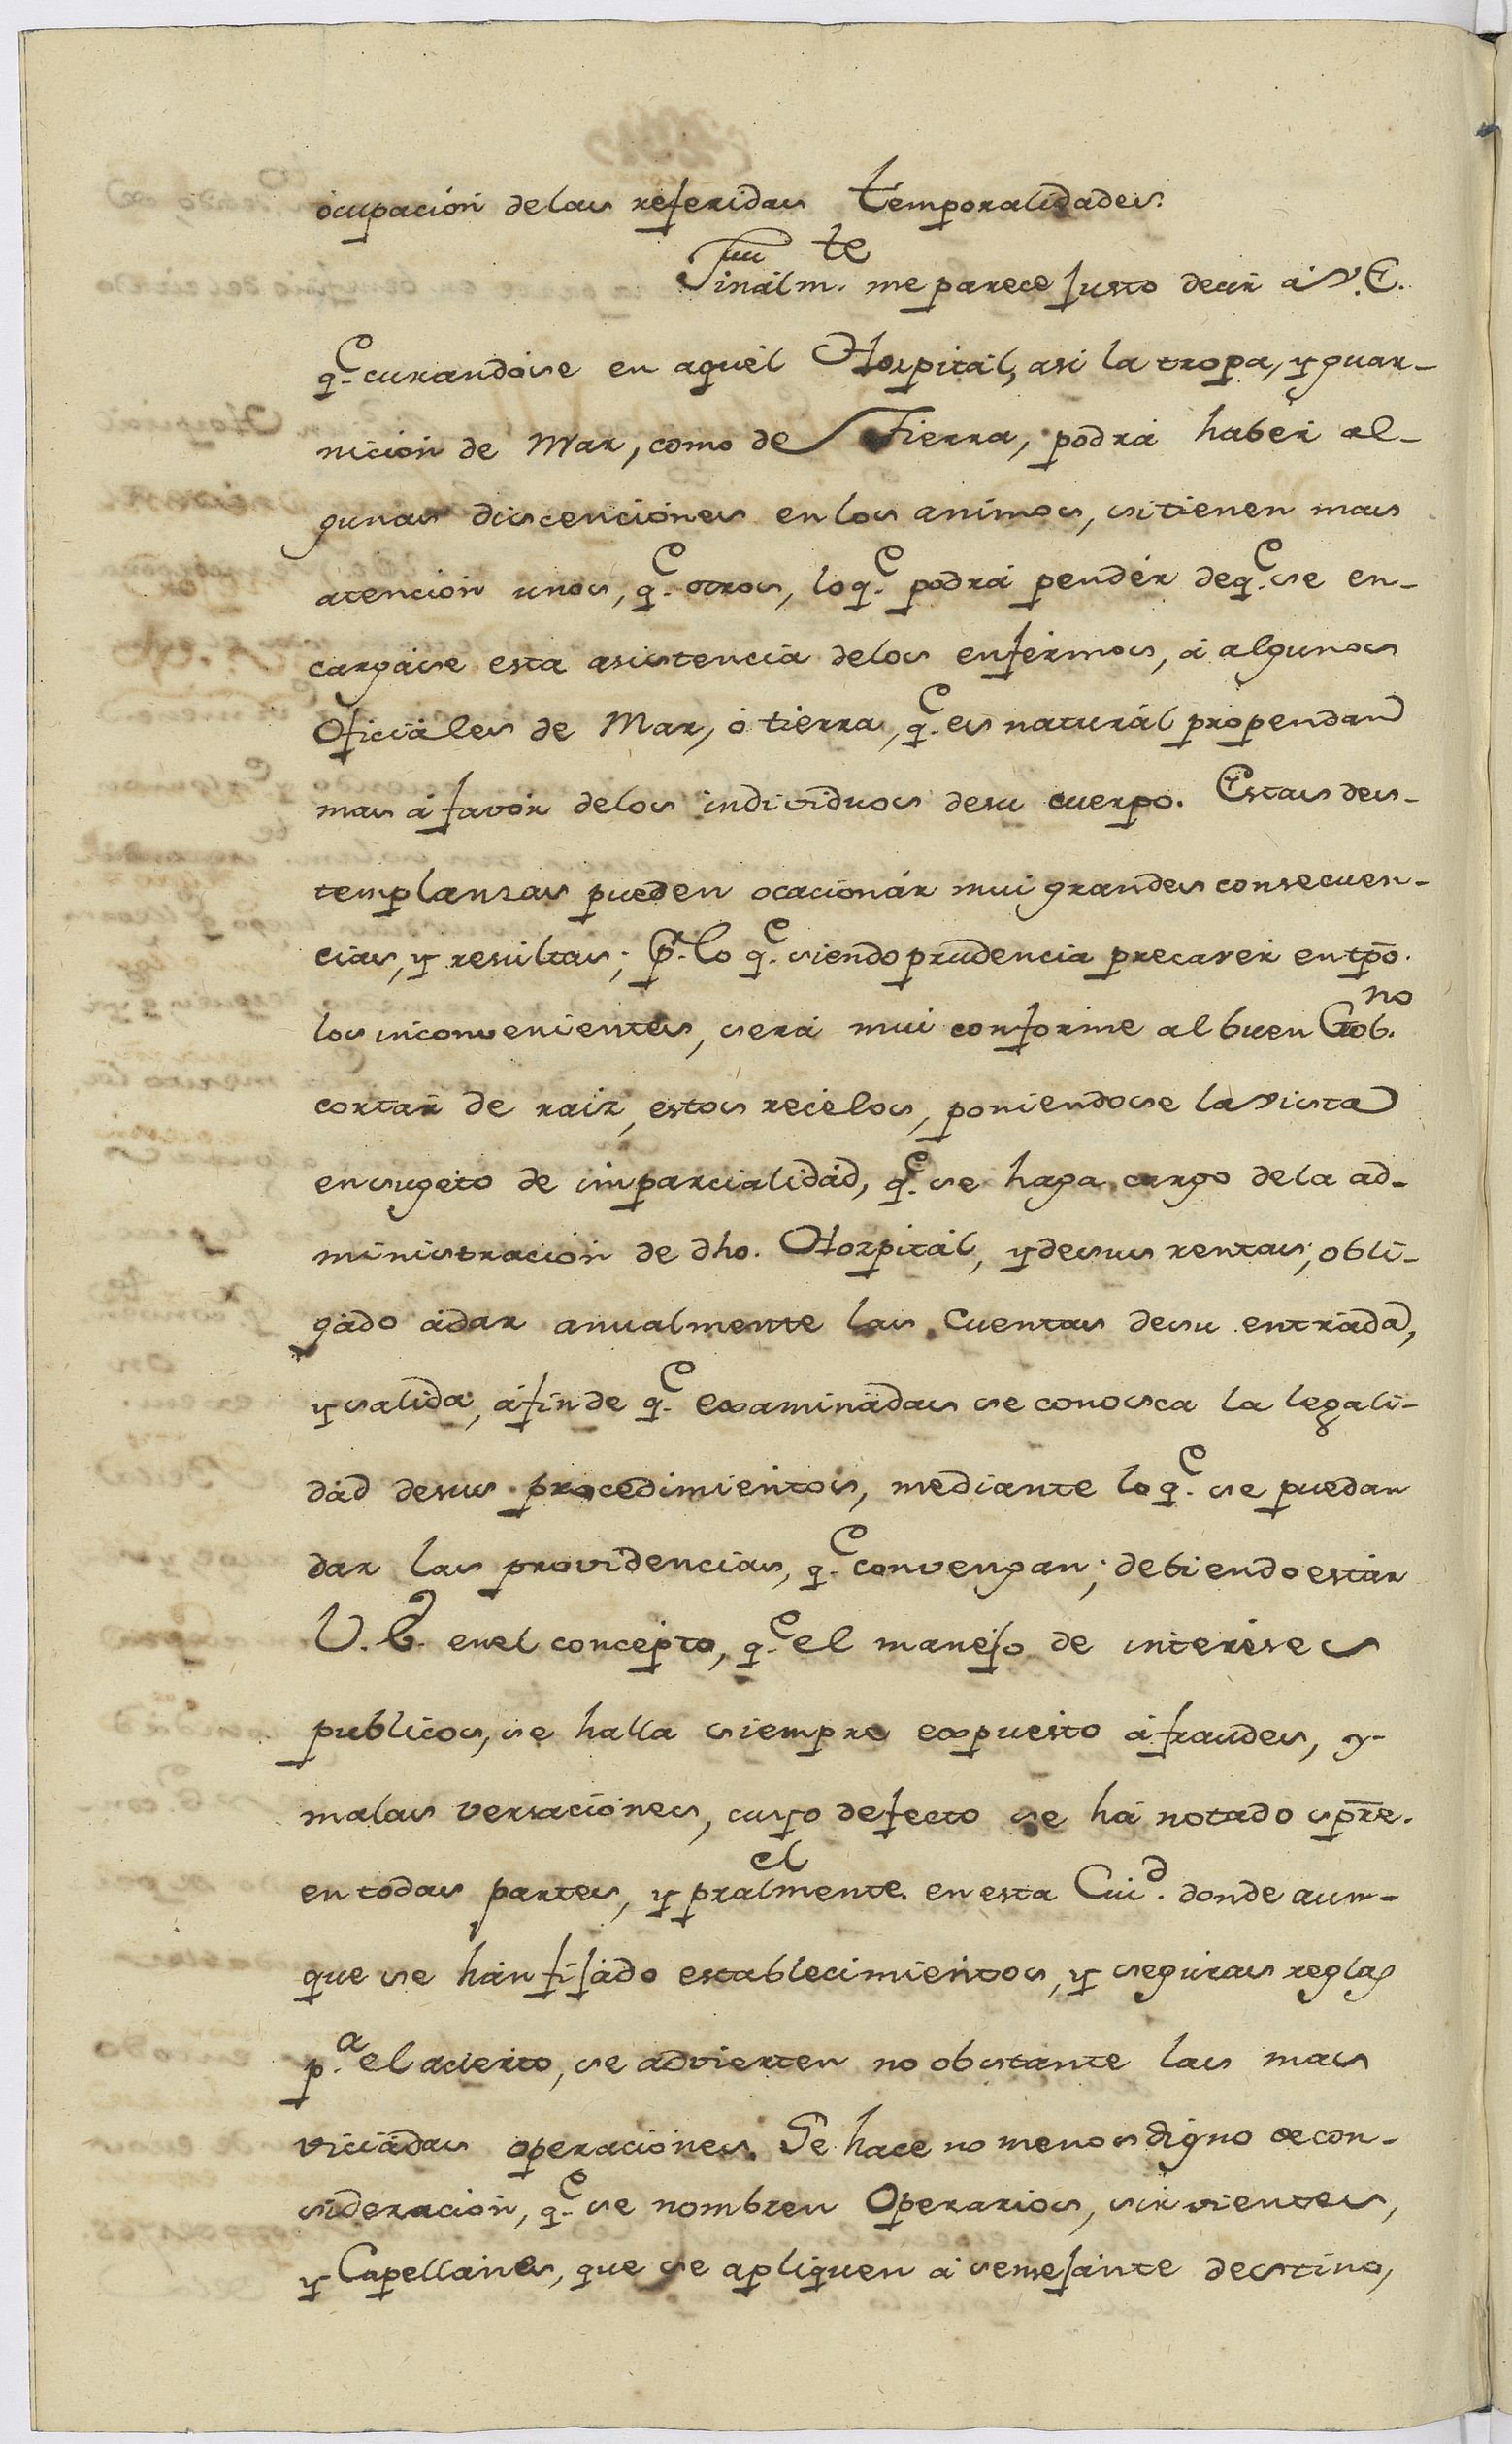 ocupación delas referidas temporalidades.
Finalm.te me parece justo decir á V.E.
q.e curandose en aquel Hospital, asi la tropa, y guar-
nicion de Mar, como de Tierra, podrá haber al-
gunas discenciones en los animos, si tienen mas
atencion unos, q.e otros, lo q.e podrá pender de q.e se en-
cargase esta asistencia delos enfermos, á algunos
Oficiales de Mar, ó tierra, q.e es natural propendan
mas á favor delos individuos desu cuerpo. Estas des-
templansas pueden ocacionar mui grandes consecuen-
cias, y resultas; p.r lo q.e siendo prudencia precaver en tpō.
los inconvenientes, será mui conforme al buen Gob.no
cortar de raiz, estos recelos, poniendose la vista
en sugeto de imparcialidad, q.e se haga cargo dela ad-
ministracion de dho. Hospital, y desus rentas, obli-
gado ádar anualmente las Cuentas desu entrada,
y salida, áfin de q.e examinadas se conosca la legali-
dad desus procedimientos, mediante lo q.e se puedan
dar las providencias, q.e convengan; debiendo estar
V.E. enel concepto, q.e el manejo de intereses
publicos, se halla siempre expuesto á fraudes, y
malas versaciones, cuyo defecto se há notado spre.
en todas partes, y pralmente. en esta Ciu.d donde aun-
que se hán fijado establecimientos, y seguras reglas
p.a el acierto, se advierten no obstante las mas
viciadas operaciones. Se hace no menos digno de con-
sideracion, q.e se nombren Operarios, sirvientes,
y Capellanes, que se apliquen á semejante destino,